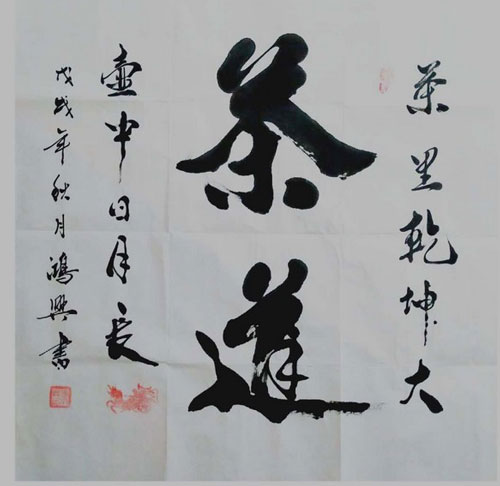 茶里乾坤大
茶道
壶中日月长
戊戌年秋月鸿興書